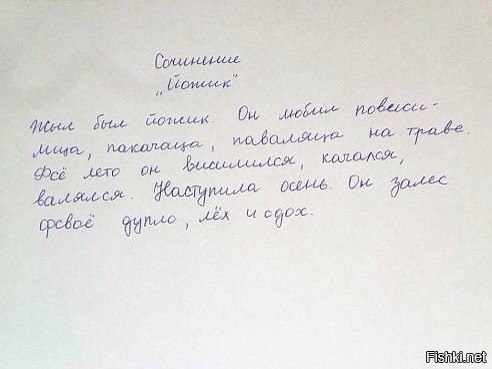 Сочинение
„Йожик"
Жыл был йожик. Он любил повеси-
лица, пакачаца, паваляца на траве.
Фсё лето он висилился, качался,
валялся. Наступила осень. Он залес
фсваё дупло, лёх и сдох.
Fishki.net